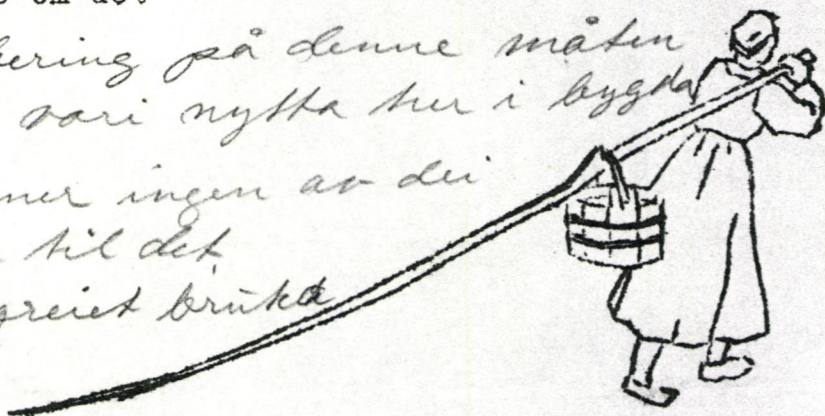 om de?
bering på denne måten
vori nytta her i bygda
ner ingen av dei
til det
greiet brukt